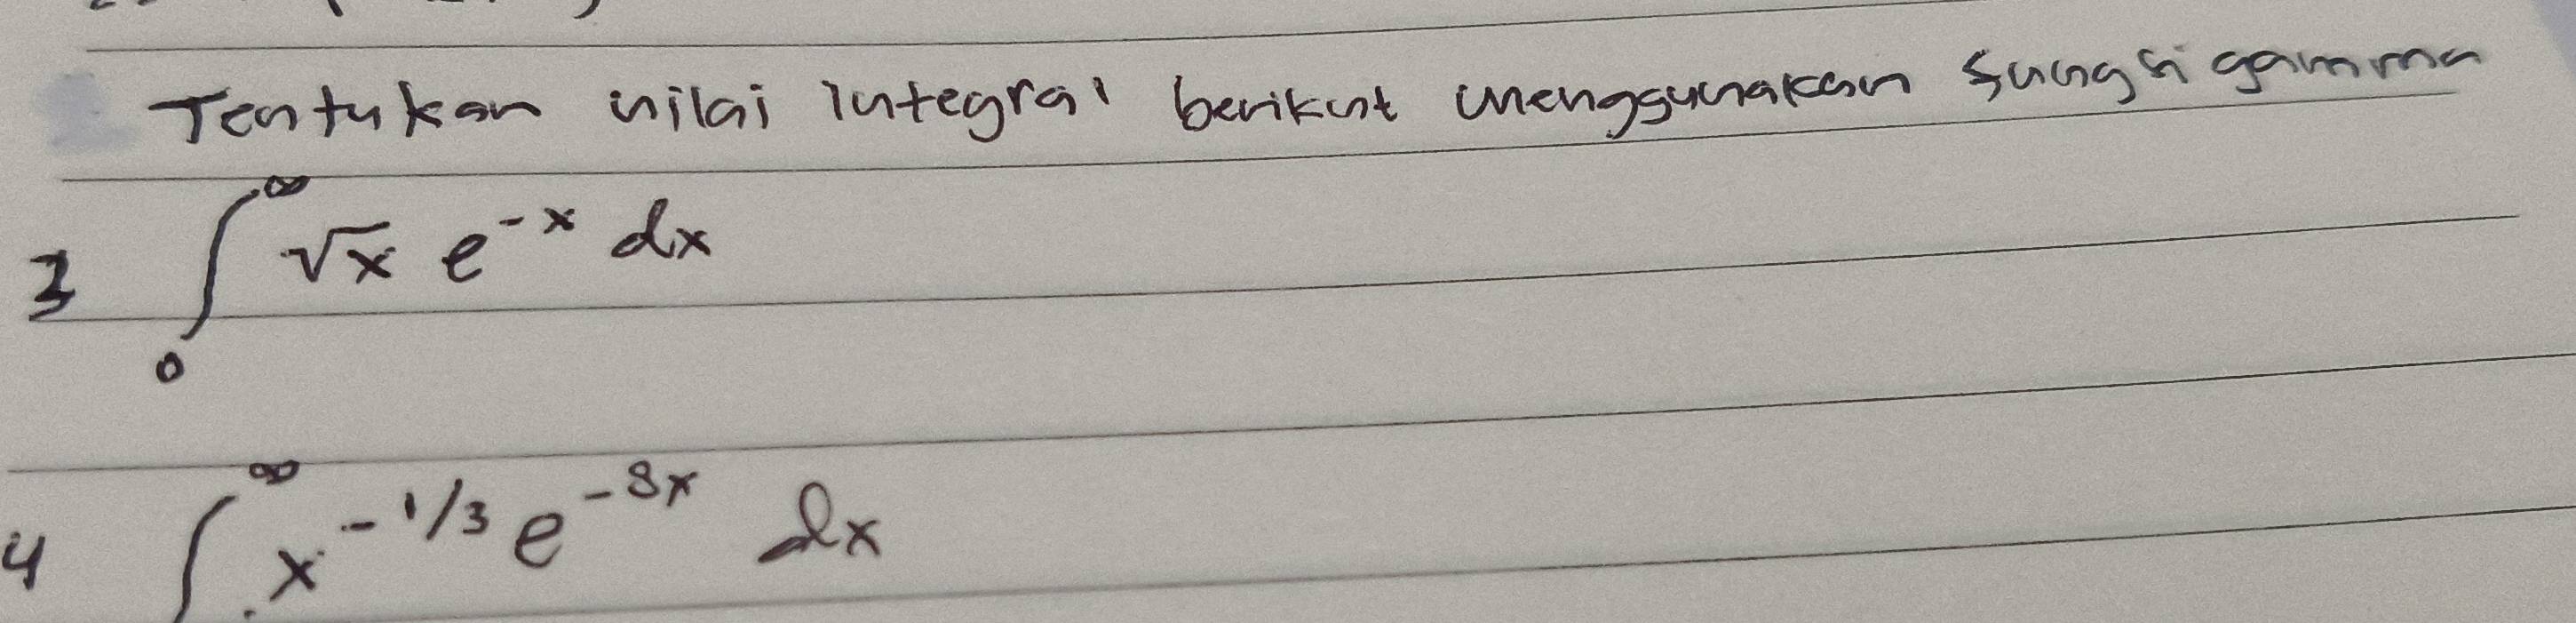 Tentukan nilai integral berikut menggunakan fungsi gamma
3 ∫₀^∞ √x e^{-x} dx
4 ∫^∞ x^{-1/3} e^{-8x} dx